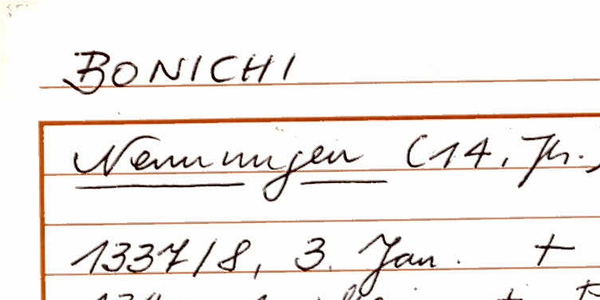 BONICHI
Nennungen (14. Jh.)
1337/8, 3. Jan. +